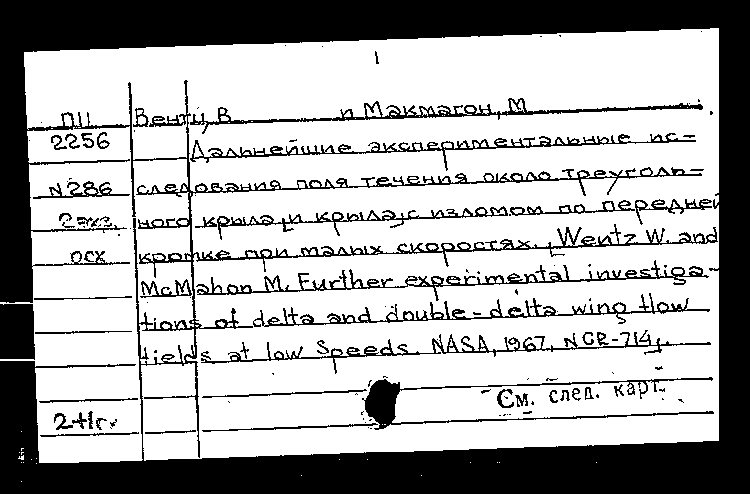 1
ПII Вентц, В и Макмагон, М.
2256 Дальнейшие экспериментальные ис=
N286 следования поля течения около треуголь=
2 экз. ного крыла и крыла с изломом по передней
осх кромке при малых скоростях. Wentz W. and
McMahon M. Further experimental investiga-
tions of delta and double-delta wing flow
fields at low Speeds. NASA, 1967, NCR-714,
См. след. карт.